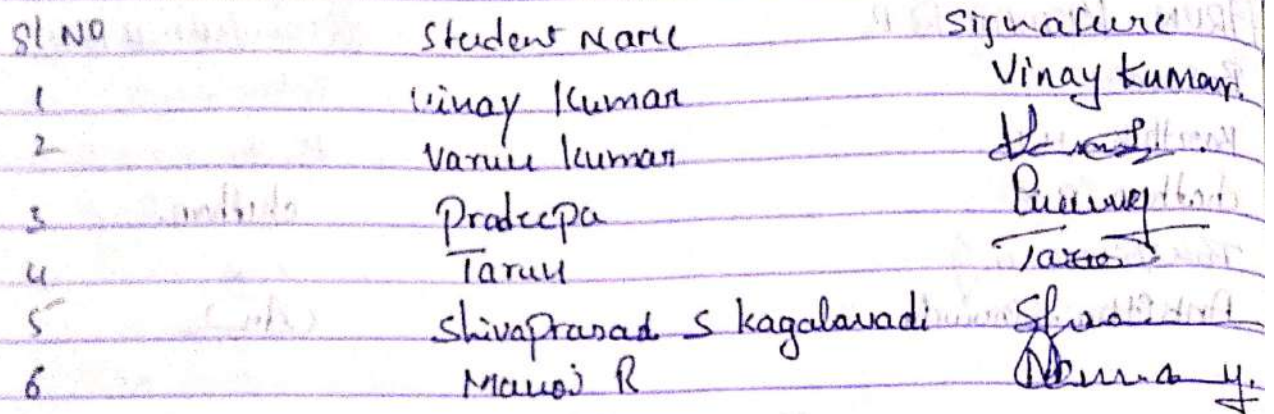 Sl No Student Name Signature
1 Vinay Kumar Vinay Kumar.
2 Varun Kumar
3 Pradeepa
4 Tarun Tarun
5 Shivaprasad S Kagalavadi
6 Manoj R